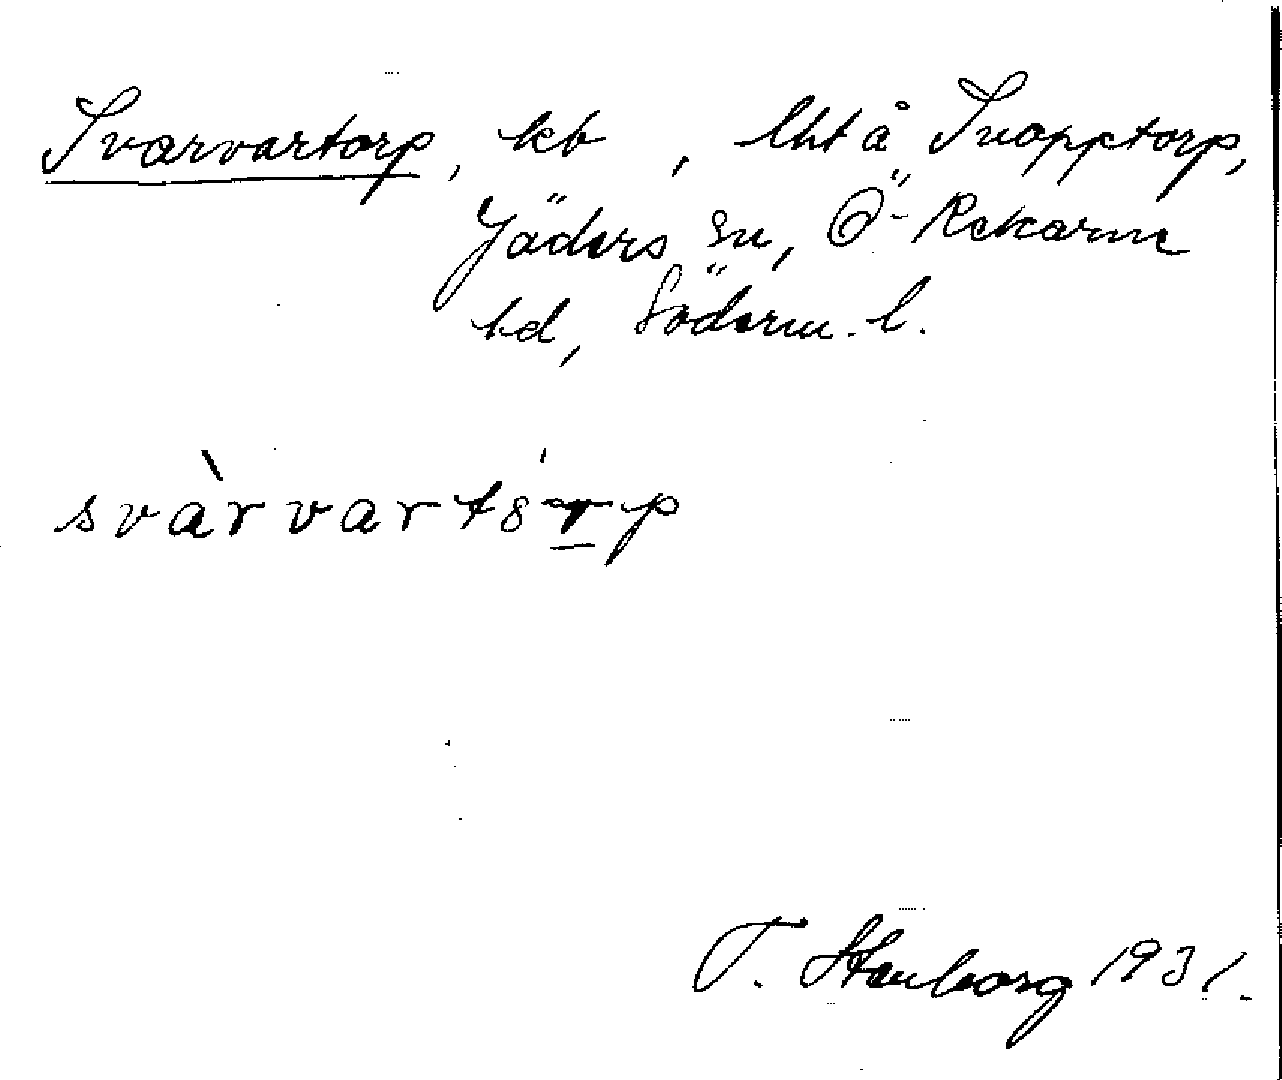 Svarvartorp, kb , lht å Snopptorp,
Jäders sn, Ö-Rekarne
hd, Söderm. l.
svàrvartórp
T. Stenborg 1931.